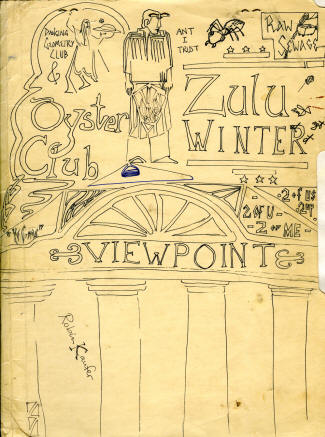 DANCING
GEOMETRY
CLUB
ANT
I
TRUST
RAW
SEWAGE
Oyster
Club
Zulu
WINTER
- 2 of US
2 OF U -
- 2 OF ME -
VIEWPOINT
Robin